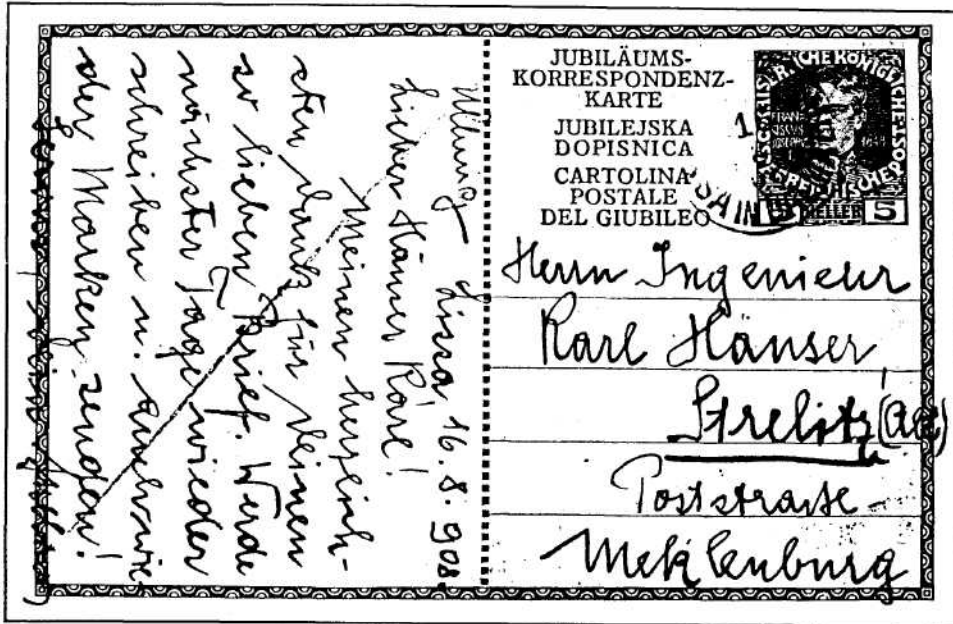 JUBILÄUMS-
KORRESPONDENZ-
KARTE
JUBILEJSKA
DOPISNICA
CARTOLINA
POSTALE
DEL GIUBILEO
5 HELLER 5
Herrn Ingenieur
Karl Hänser
Strelitz (Alt)
Poststraße
Meklenburg
Lissa, 16.8.908.
Lieber Hänser Karl!
Meinen herzlich-
sten Dank für Deinen
so lieben Brief. Werde
nächster Tage wieder
schreiben u. auch wie-
der Marken senden!